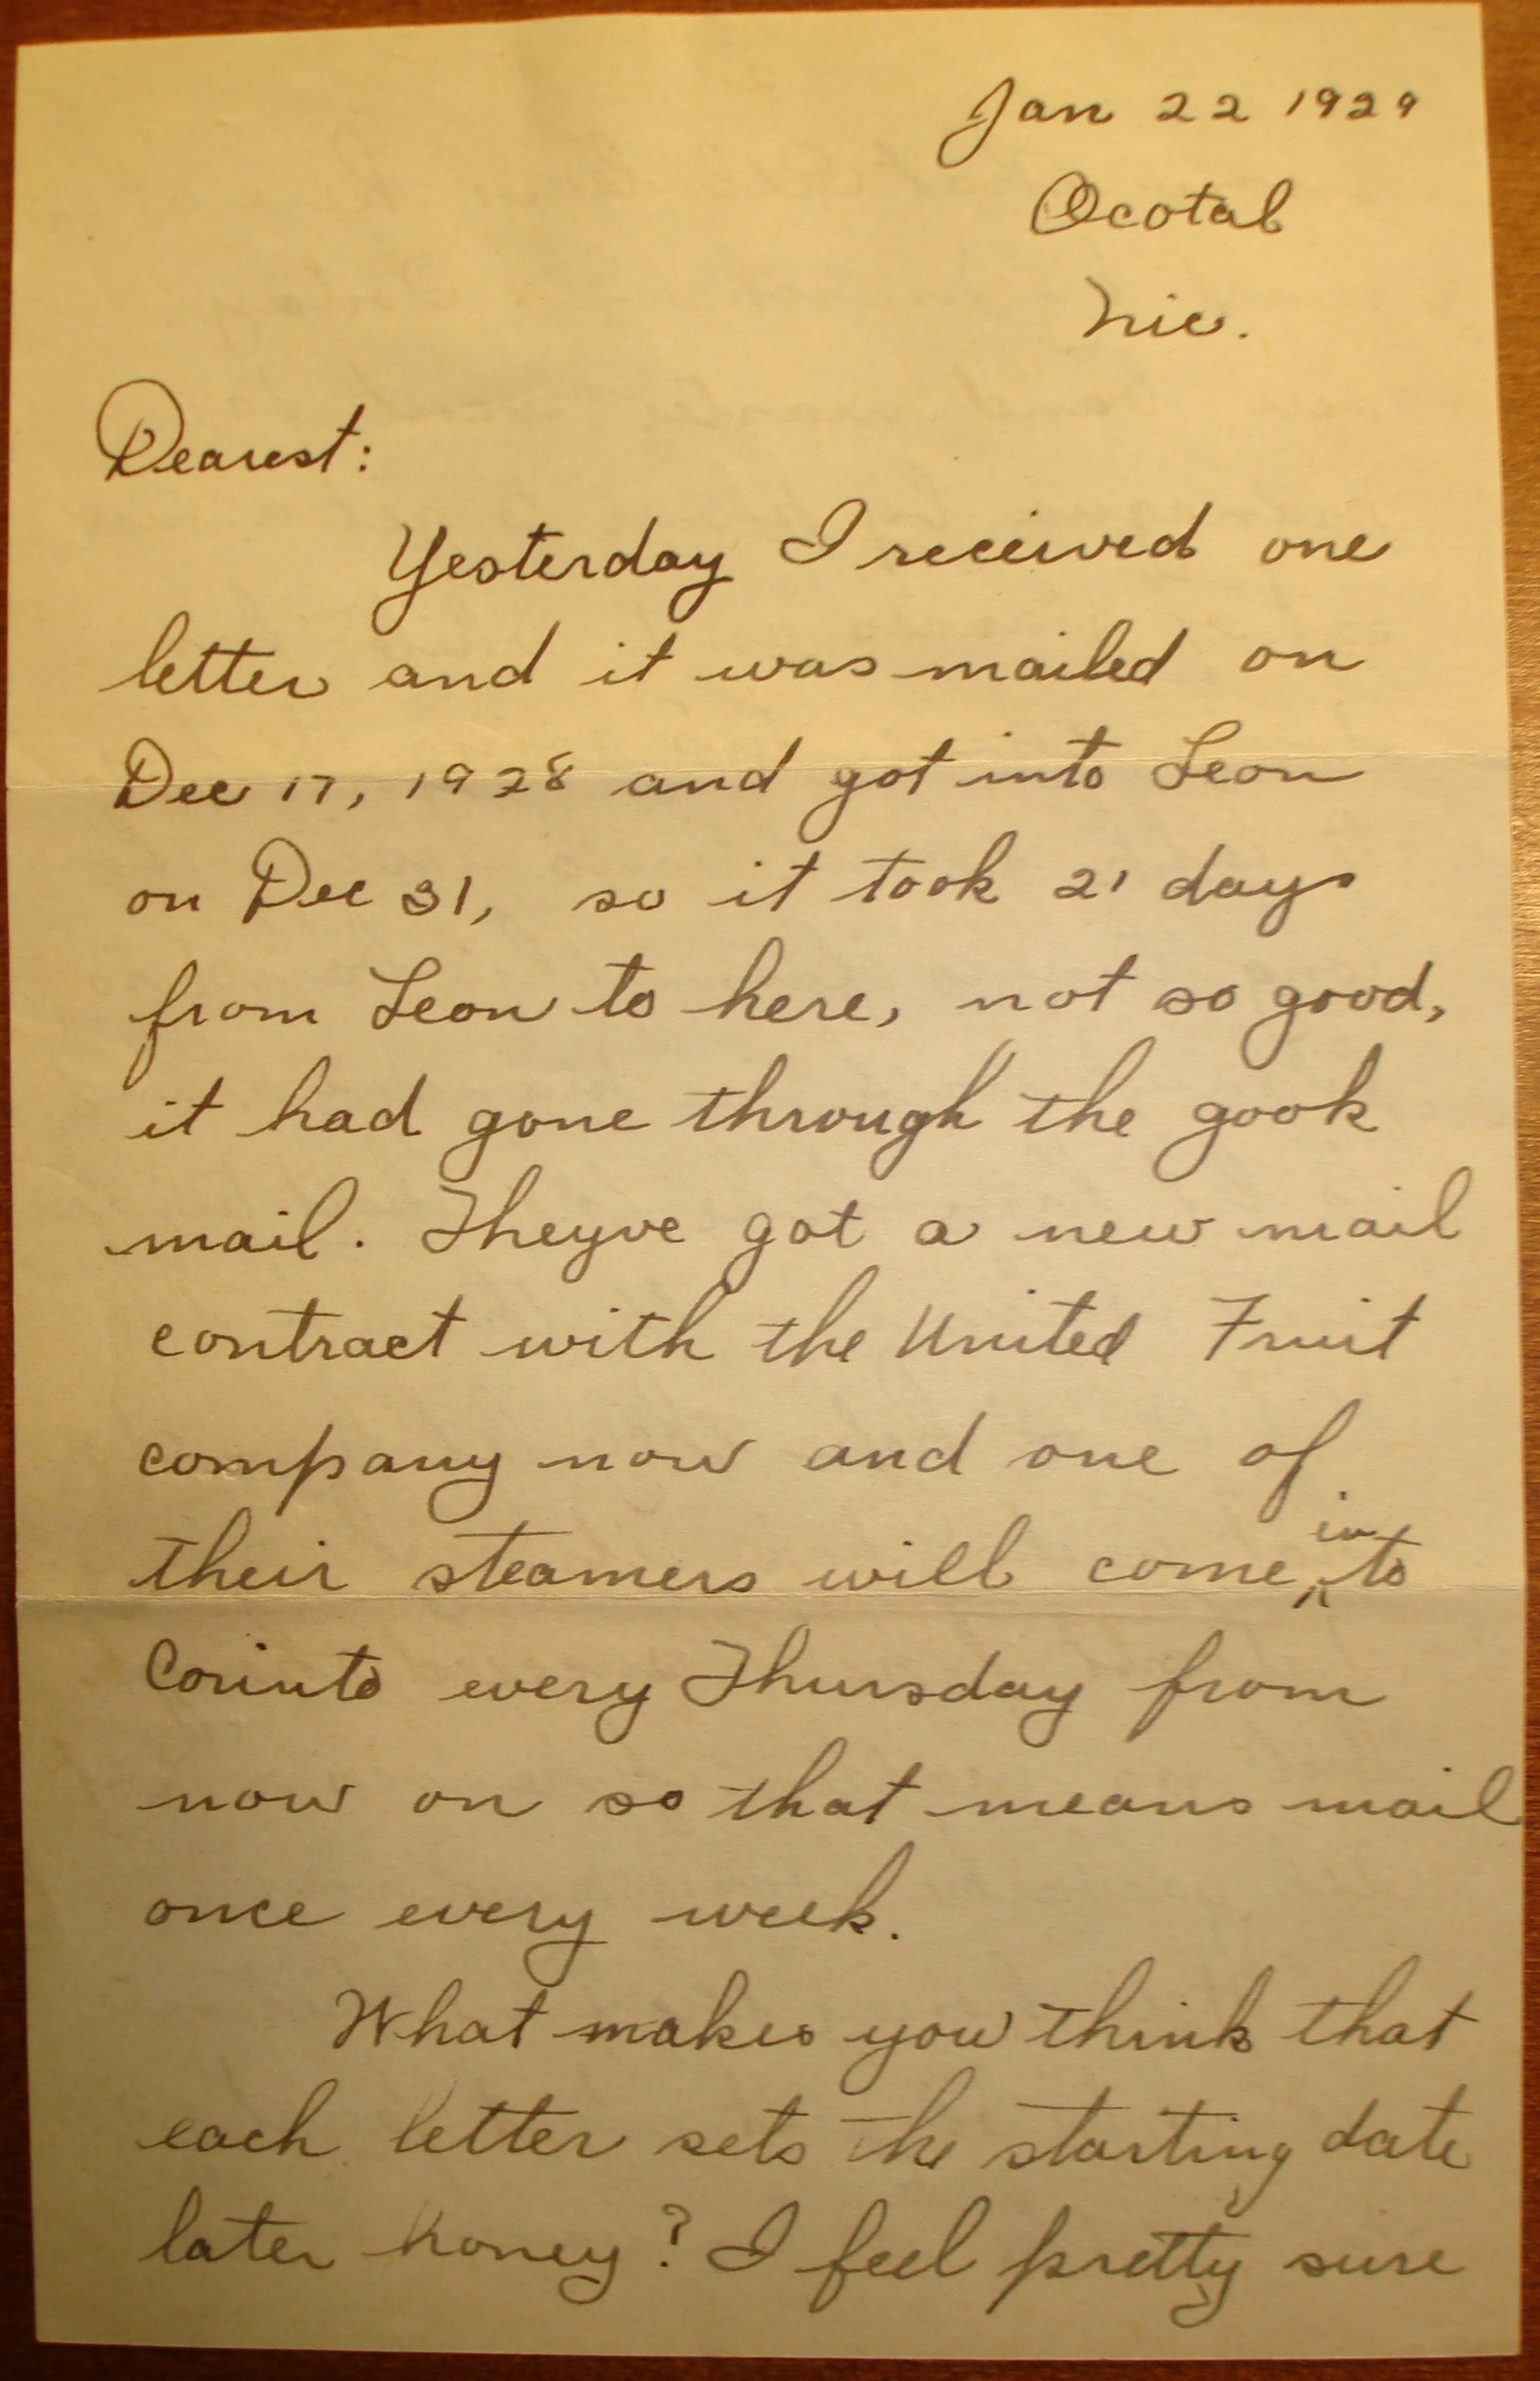 Jan 22 1929
Ocotal
Nic.
Dearest:
Yesterday I received one
letter and it was mailed on
Dec 17, 1928 and got into Leon
on Dec 31, so it took 21 days
from Leon to here, not so good,
it had gone through the gook
mail. Theyve got a new mail
contract with the United Fruit
company now and one of
their steamers will come in to
Corinto every Thursday from
now on so that means mail
once every week.
What makes you think that
each letter sets the starting date
later honey? I feel pretty sure